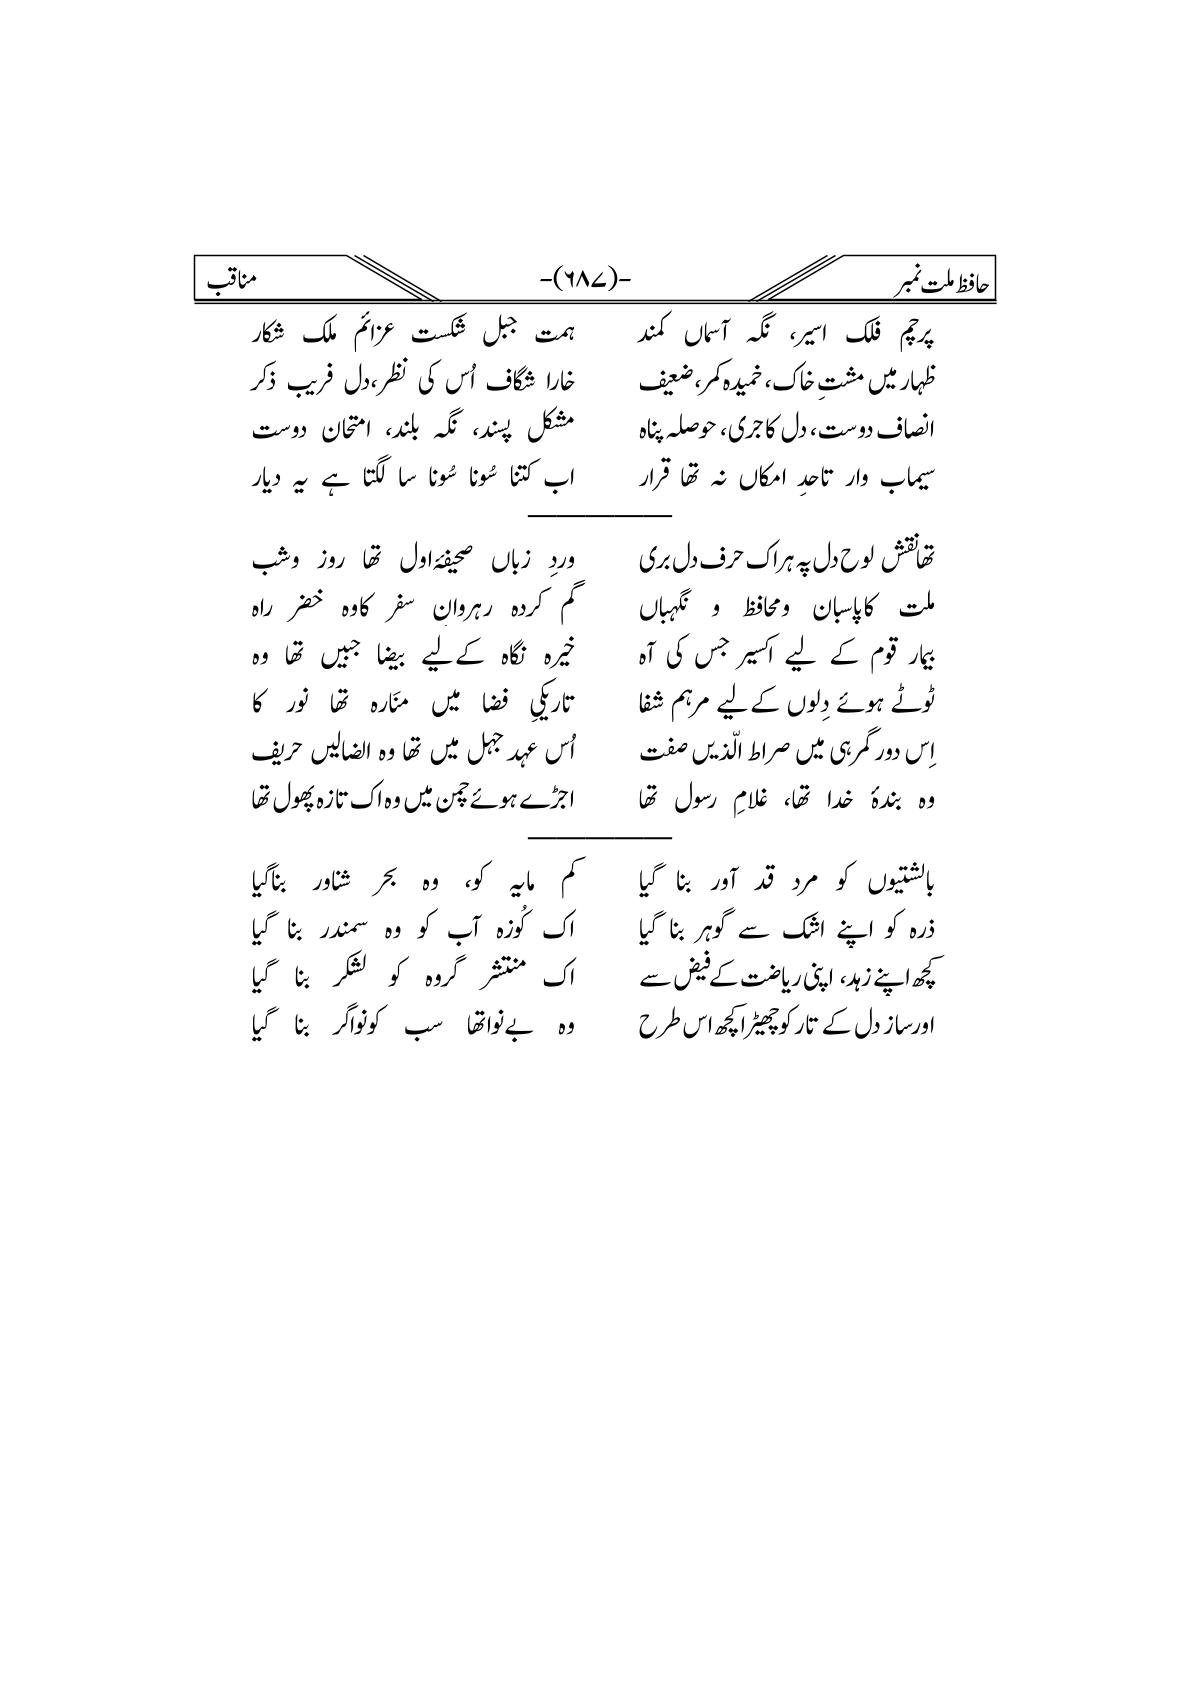 حافظ ملت نمبر -(۶۸۷)- مناقب
پرچم فلک اسیر، نگہ آسماں کمند ہمت جبل شکست عزائم ملک شکار
ظہار میں مشتِ خاک، خمیدہ کمر، ضعیف خارا شگاف اُس کی نظر، دل فریب ذکر
انصاف دوست، دل کا جری، حوصلہ پناہ مشکل پسند، نگہ بلند، امتحان دوست
سیماب وار تاحدِ امکاں نہ تھا قرار اب کتنا سُونا سُونا سا لگتا ہے یہ دیار
تھا نقش لوح دل پہ ہر اک حرف دل بری وردِ زباں صحیفۂ اول تھا روز وشب
ملت کا پاسبان ومحافظ و نگہباں گم کردہ رہروانِ سفر کا وہ خضر راہ
بیمار قوم کے لیے اکسیر جس کی آہ خیرہ نگاہ کے لیے بیضا جبیں تھا وہ
ٹوٹے ہوئے دِلوں کے لیے مرہم شفا تاریکیِ فضا میں منَارہ تھا نور کا
اِس دور گمرہی میں صراط الّذیں صفت اُس عہد جہل میں تھا وہ الضالیں حریف
وہ بندۂ خدا تھا، غلامِ رسول تھا اجڑے ہوئے چمن میں وہ اک تازہ پھول تھا
بالشتیوں کو مرد قد آور بنا گیا کم مایہ کو، وہ بحر شناور بنا گیا
ذرہ کو اپنے اشک سے گوہر بنا گیا اک کُوزہ آب کو وہ سمندر بنا گیا
کچھ اپنے زہد، اپنی ریاضت کے فیض سے اک منتشر گروہ کو لشکر بنا گیا
اور ساز دل کے تار کو چھیڑا کچھ اس طرح وہ بے نوا تھا سب کو نوا گر بنا گیا